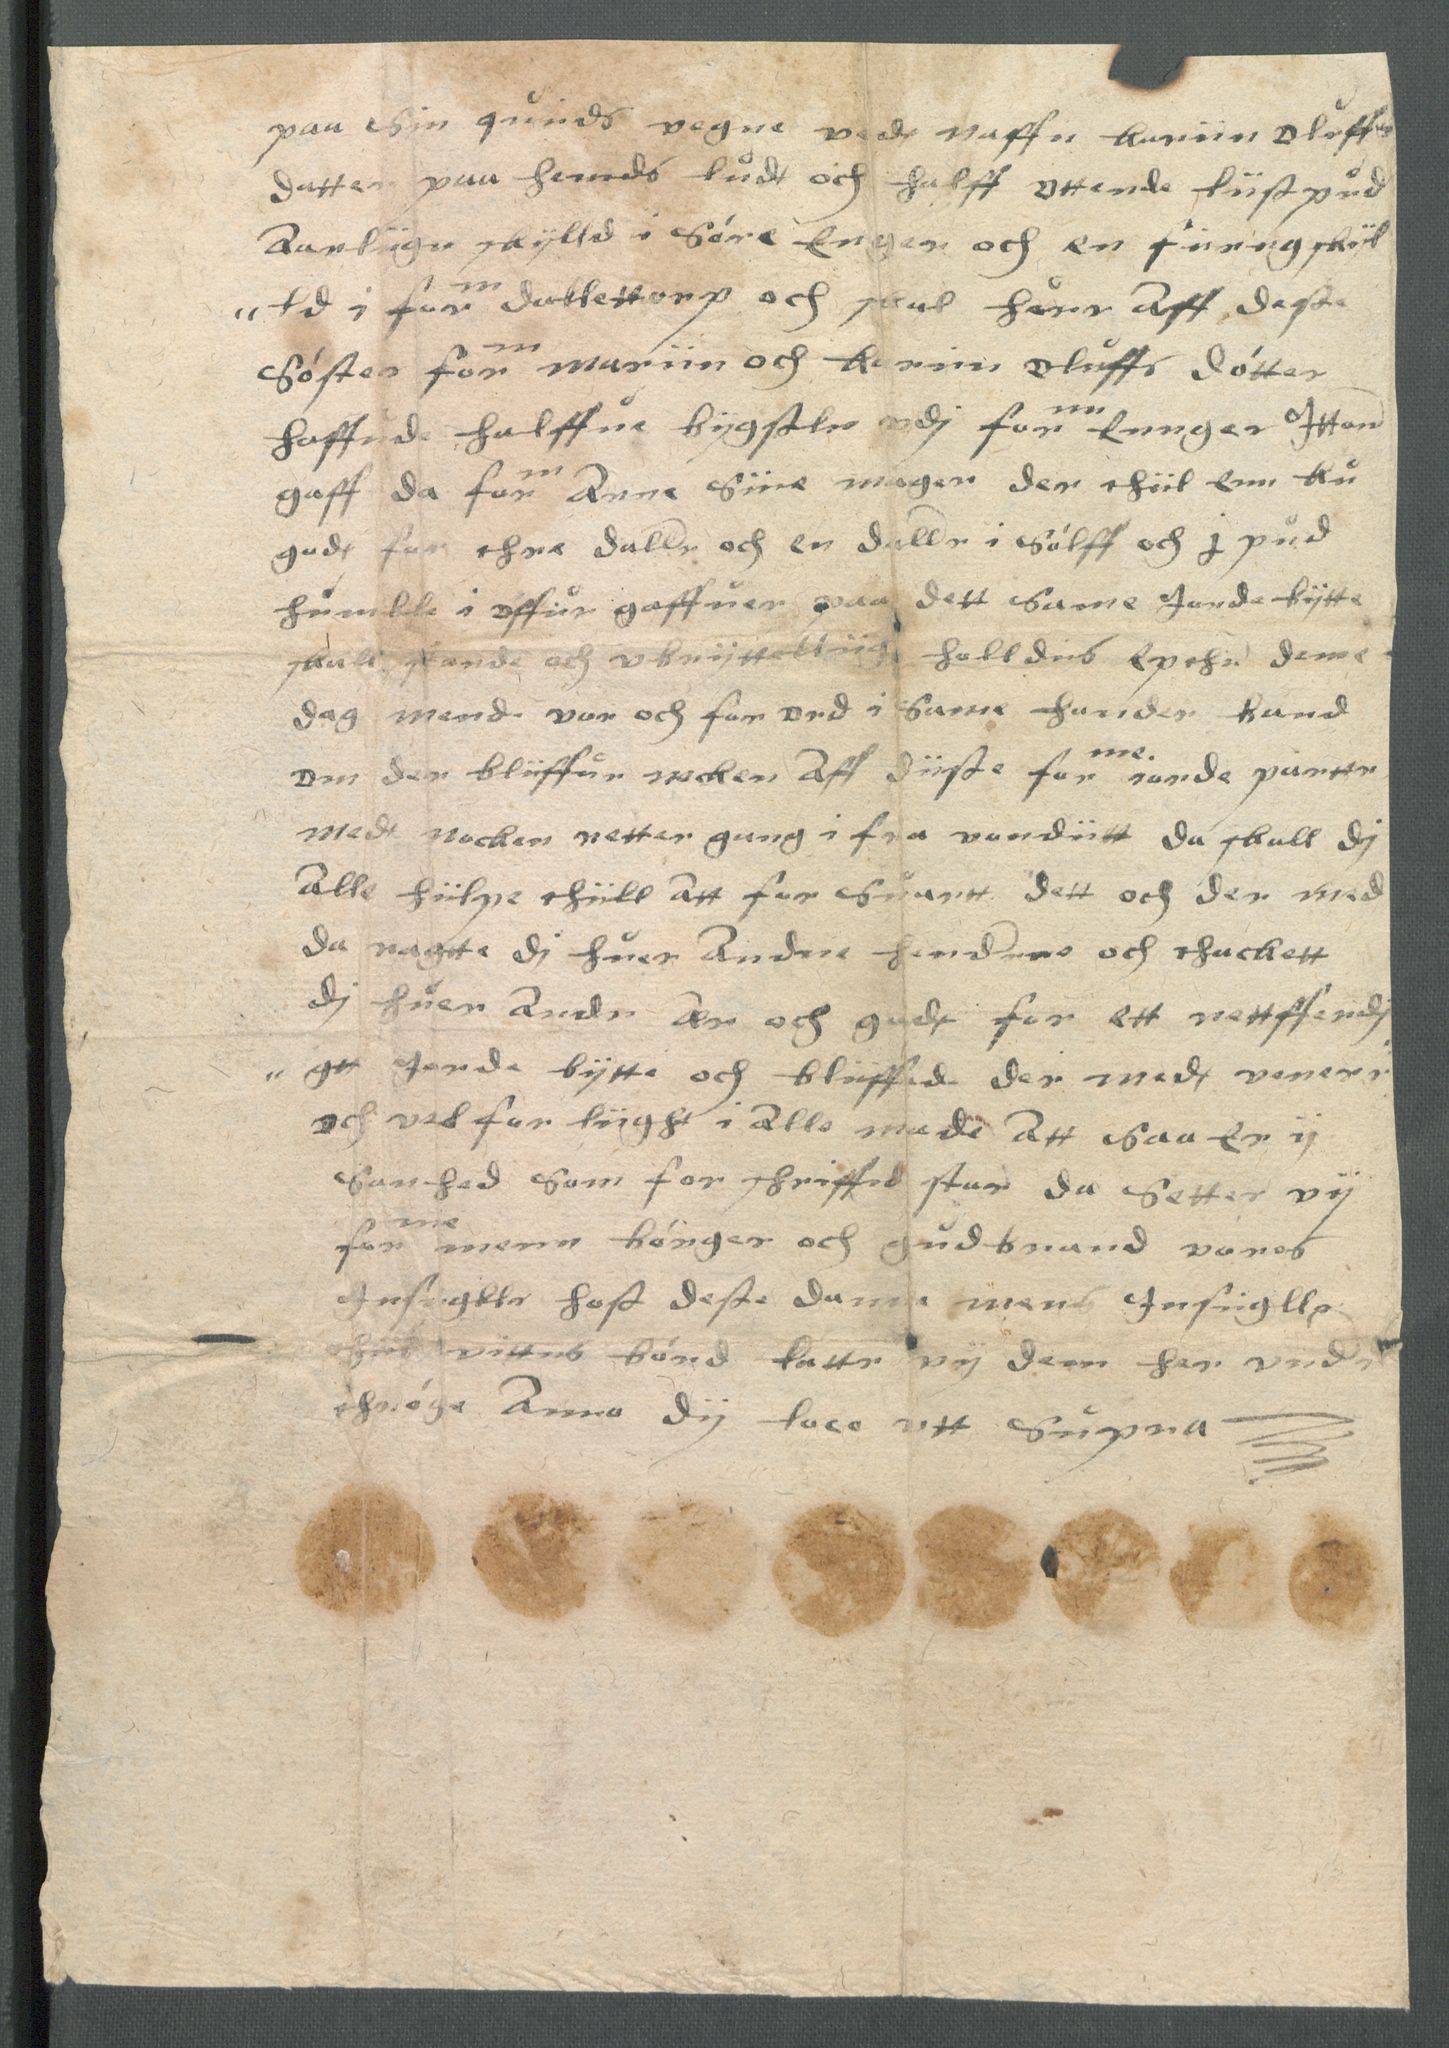 paa sin quinds vegne ved naffn kariin oluffs
datter paa hends ludt och halff ottende liistpůd
aarliigu skylld i Sőre Enger och en fiirngskiil
"ld i for m dallettorp och skal huer aff deste
Sőster for m mariin och kariin oluffs dőtter
haffude halffue bygsle vdj for nn Ennger Itton
gaff da for m Anne siine mager der thiil enn ku
godt for thre daller och en daller i Sőlff och j půd
humble i offuer gaffuer paa dett same Jorde bytte
skall stande och vbryttelliig holldes epther deme
dag mend vor och for ord i same hander band
om der bliiffur nocken aff diiste for me iorde partter
medt nocken retter gang i fra vondiitt da skall dj
Alle hiilpe thiill Att for suartt dett och der med
da ragtte dj huer Andre hendrne och thackett
dj huer Andre ær och godt for ett rettfferdj
" gtt Jorde bytte och bliiffed der medt vener
och vel for liight i Alle made Att saa er ij
sanhed som for skriffed star da setter vij
for me menn bőrger och gudbrand vores
Insiiglle host deste danne mens Insiiglle
thiil vittnes bőrd latte vij dem her vnder
thrőge Anno dij loco vtt supra